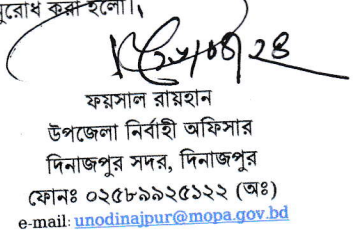 নুরোধ করা হলো।
ফয়সাল রায়হান
উপজেলা নির্বাহী অফিসার
দিনাজপুর সদর, দিনাজপুর
ফোনঃ ০২৫৮৯৯২৫১২২ (অঃ)
e-mail: unodinajpur@mopa.gov.bd